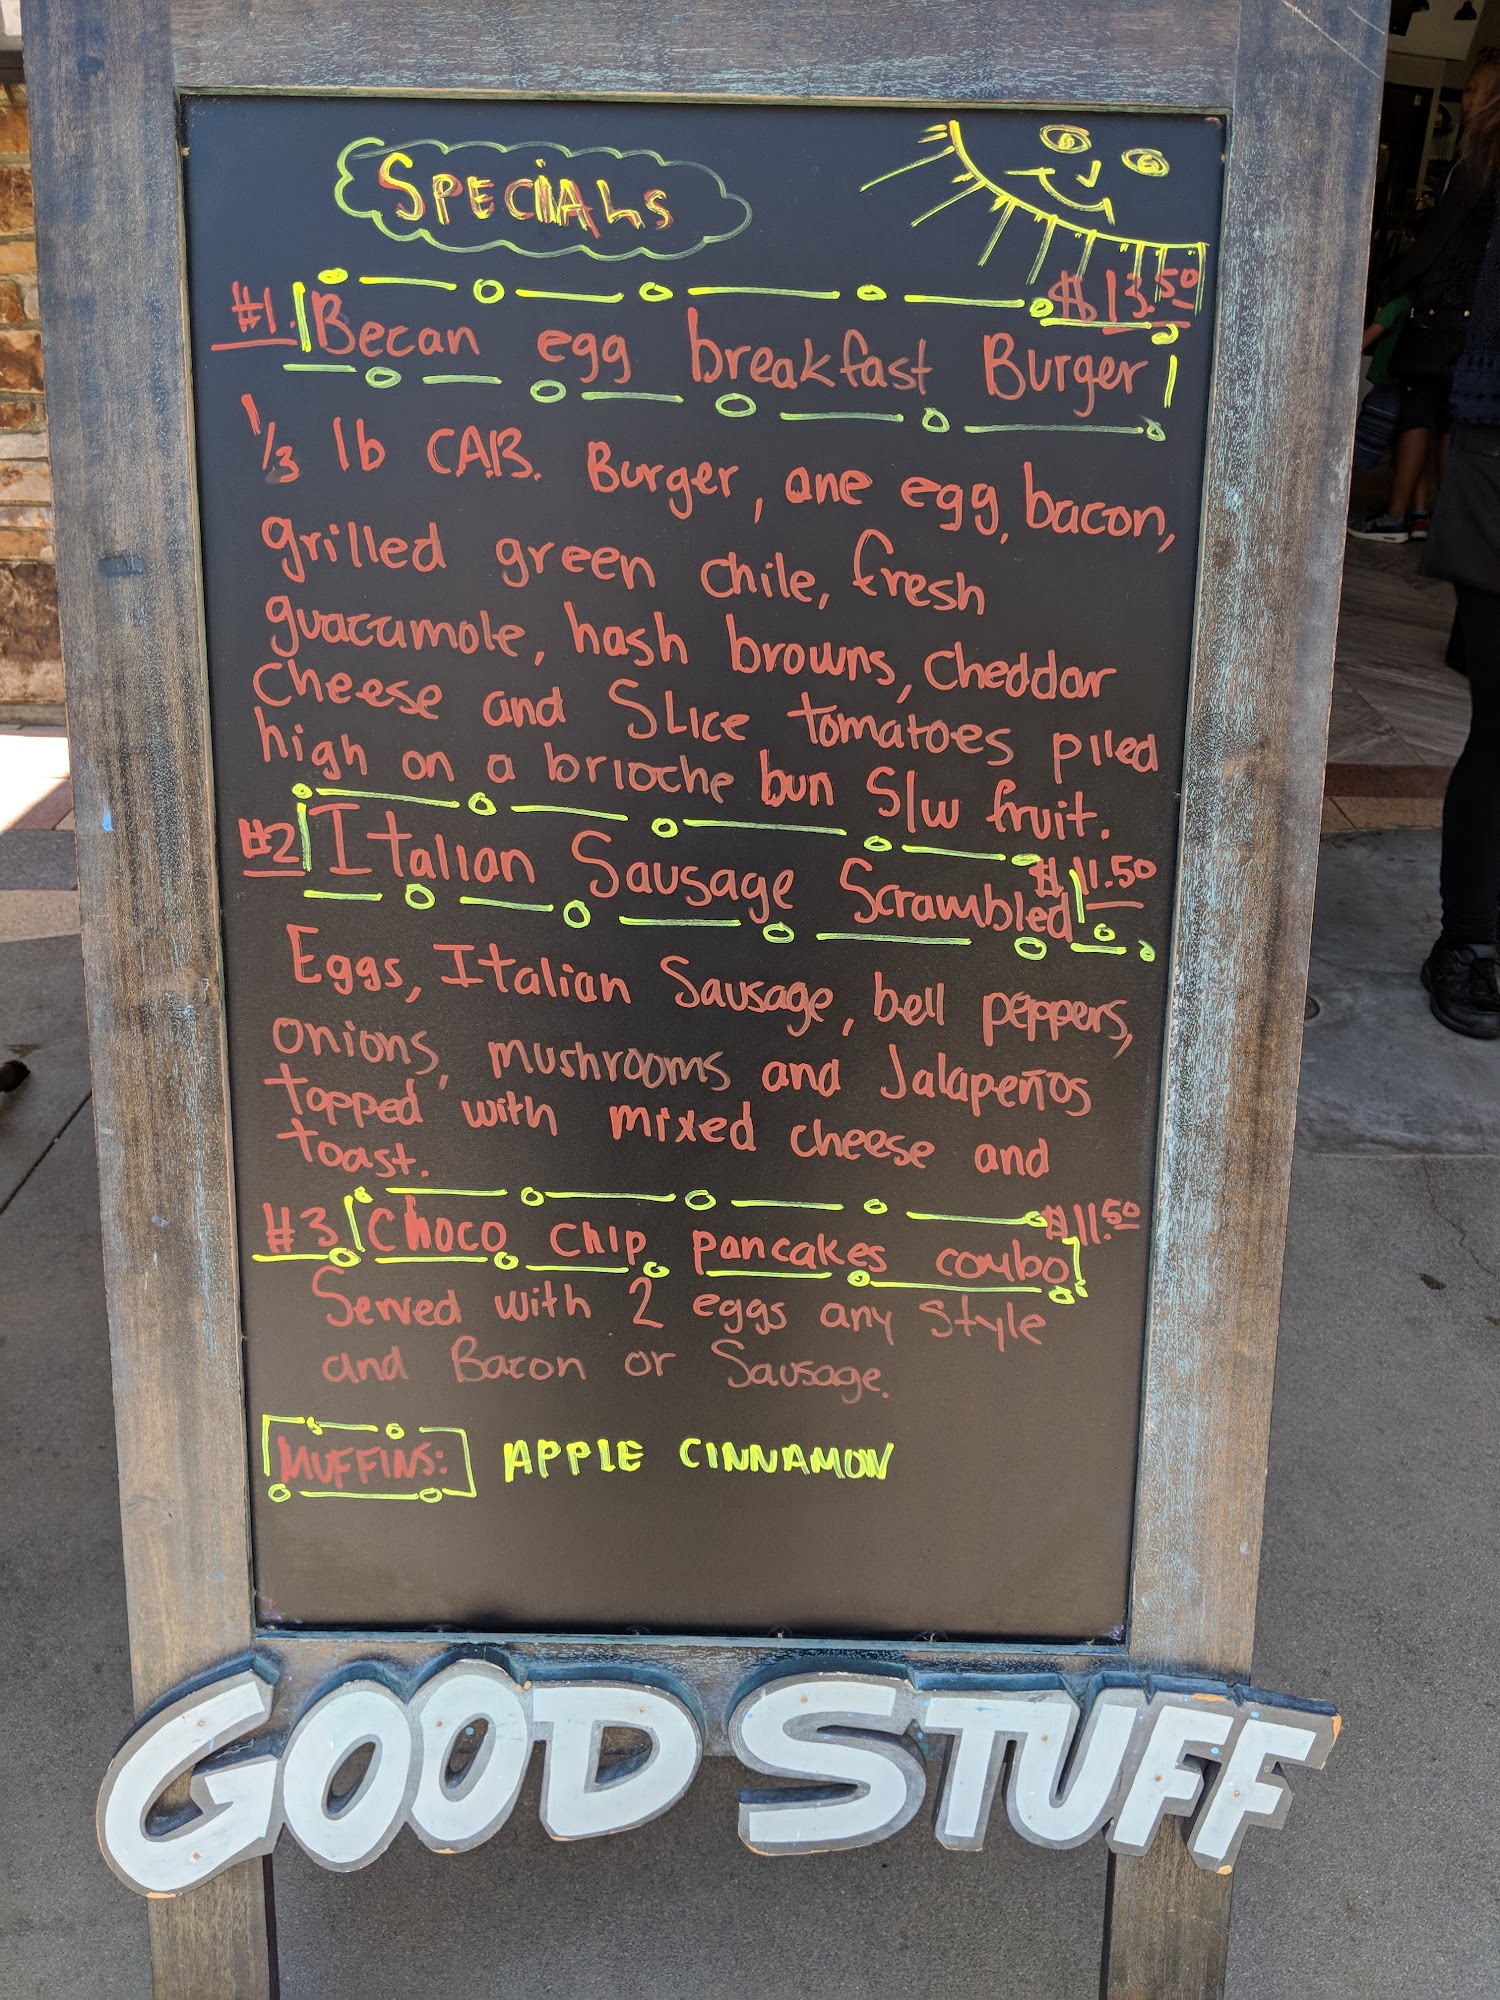 SPECIALS
$13.50
#1. Becan egg breakfast Burger
1/3 lb CAB. Burger, one egg, bacon,
grilled green chile, fresh
guacamole, hash browns, cheddar
cheese and SLice tomatoes piled
high on a brioche bun S/w fruit.
#2 Italian Sausage Scrambled $11.50
Eggs, Italian Sausage, bell peppers,
onions, mushrooms and Jalapeños
topped with mixed cheese and
toast.
#3 Choco chip pancakes combo $11.50
Served with 2 eggs any style
and Bacon or Sausage.
MUFFINS: APPLE CINNAMON
GOOD STUFF